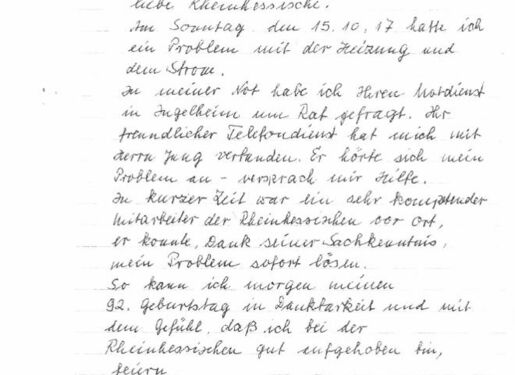 liebe Rheinhessische.
Am Sonntag, den 15.10.17 hatte ich
ein Problem mit der Heizung und
dem Strom.
In meiner Not habe ich Ihren Notdienst
in Ingelheim um Rat gefragt. Ihr
freundlicher Telefondienst hat mich mit
Herrn Jung verbunden. Er hörte sich mein
Problem an - versprach mir Hilfe.
In kurzer Zeit war ein sehr kompetender
Mitarbeiter der Rheinhessischen vor Ort,
er konnte, Dank seiner Sachkenntnis,
mein Problem sofort lösen.
So kann ich morgen meinen
92. Geburtstag in Dankbarkeit und mit
dem Gefühl, daß ich bei der
Rheinhessischen gut aufgehoben bin,
feiern